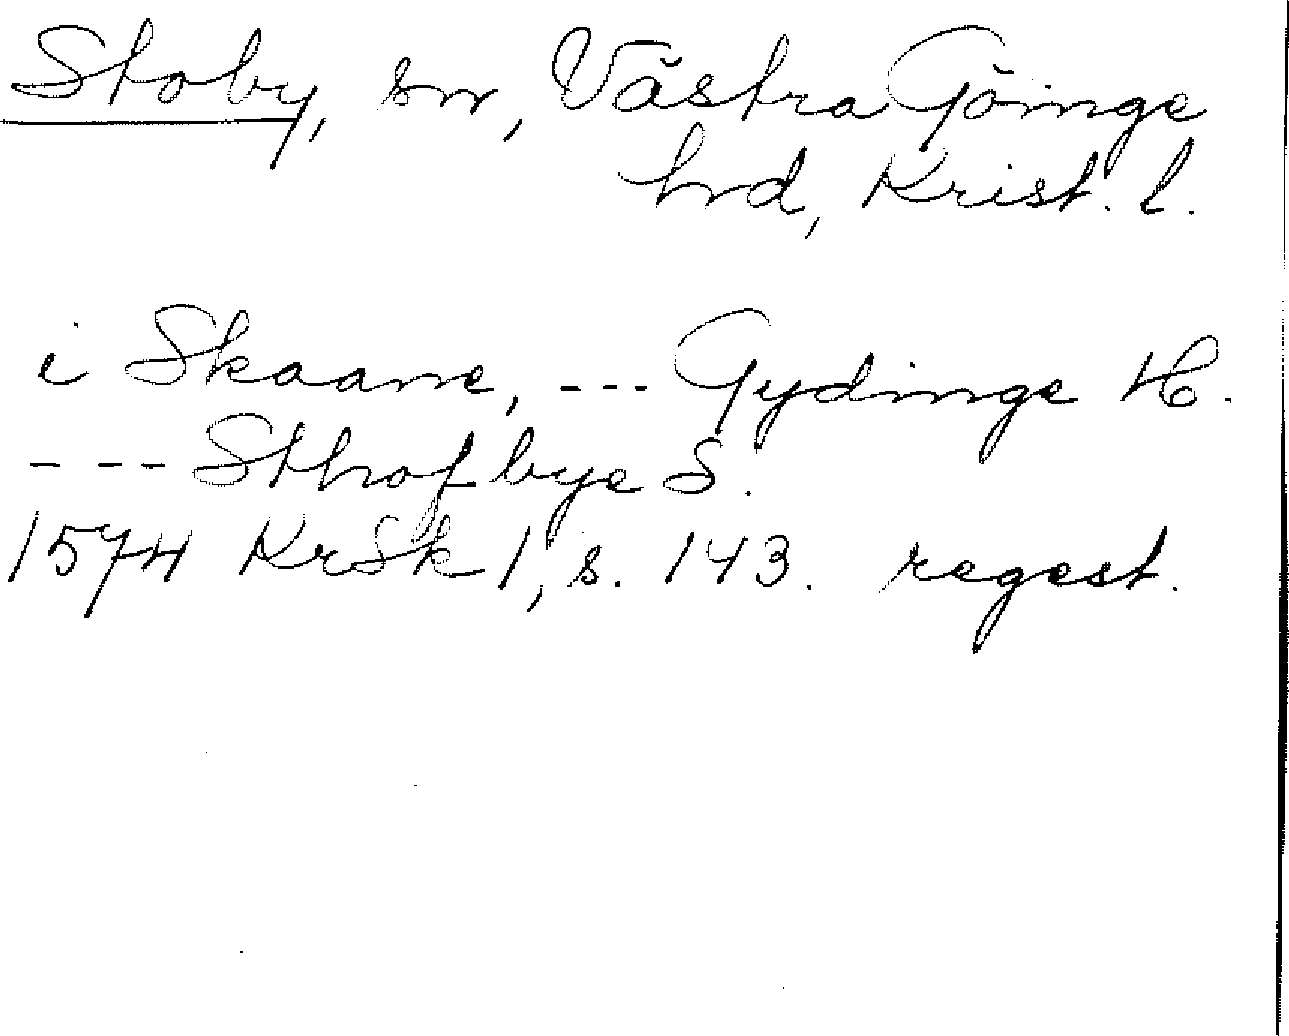 Stoby, sn, Västra Göinge
hrd, Krist. l.
i Skaane, --- Gydinge H.
--- Sthofbye S.
1574 KrSk 1, s. 143. regest.